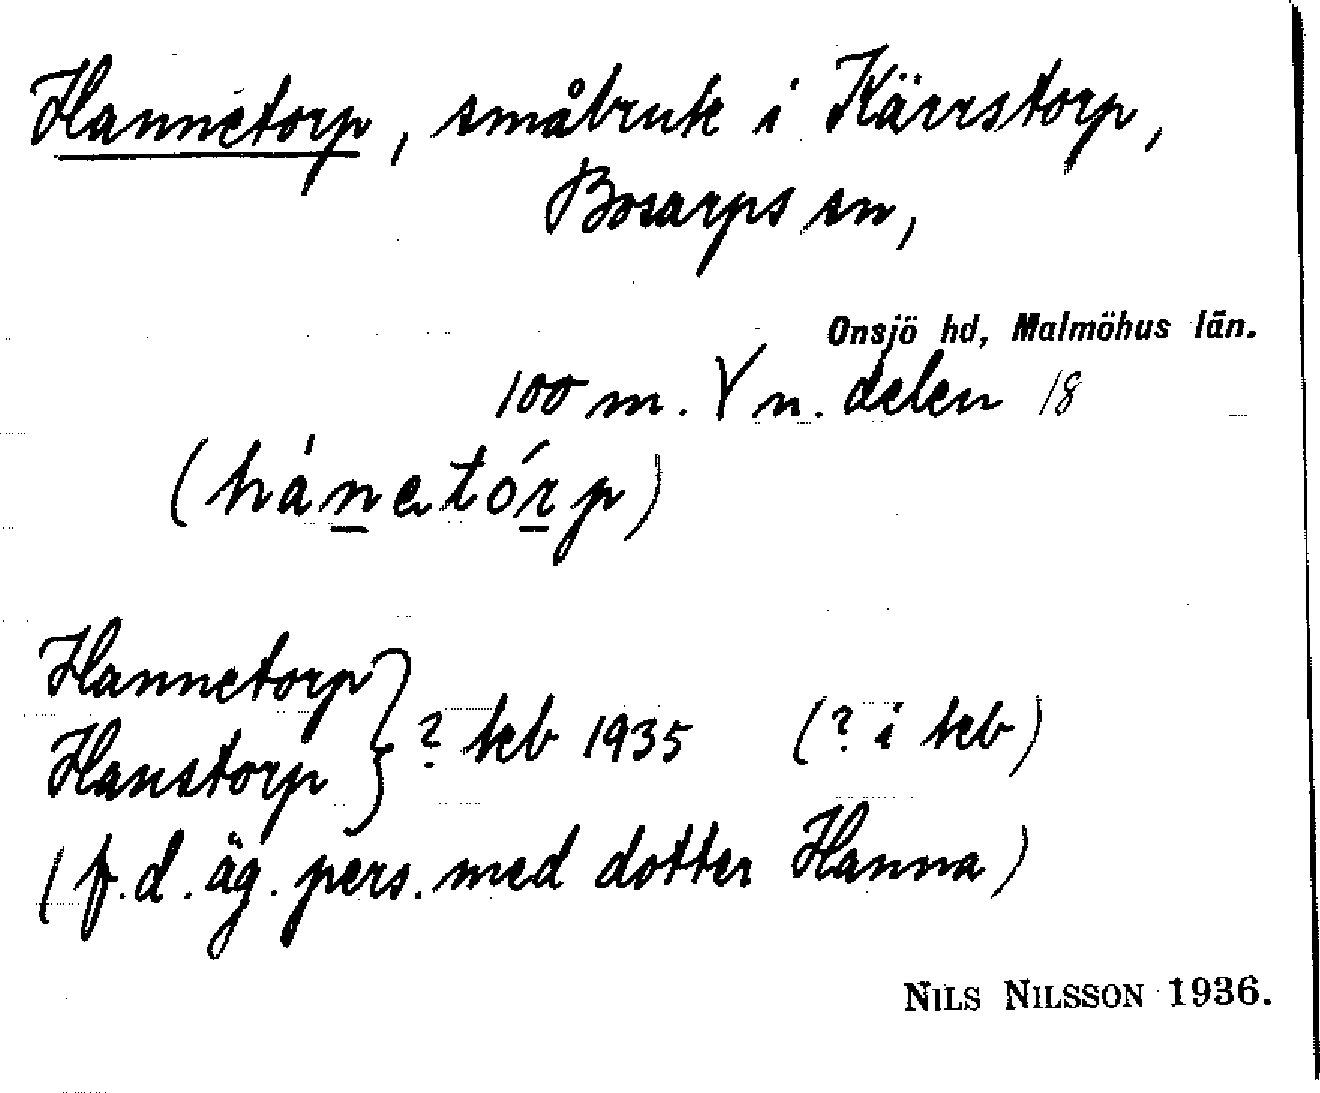 Hannetorp, småbruk i Kärrstorp,
Bosarps sn,
Onsjö hd, Malmöhus län.
100 m. V n. delen 18
(hánetórp)
Hannetorp
Hanstorp } ? kb 1935 (? i kb)
(f.d. äg. pers. med dotter Hanna)
NILS NILSSON 1936.